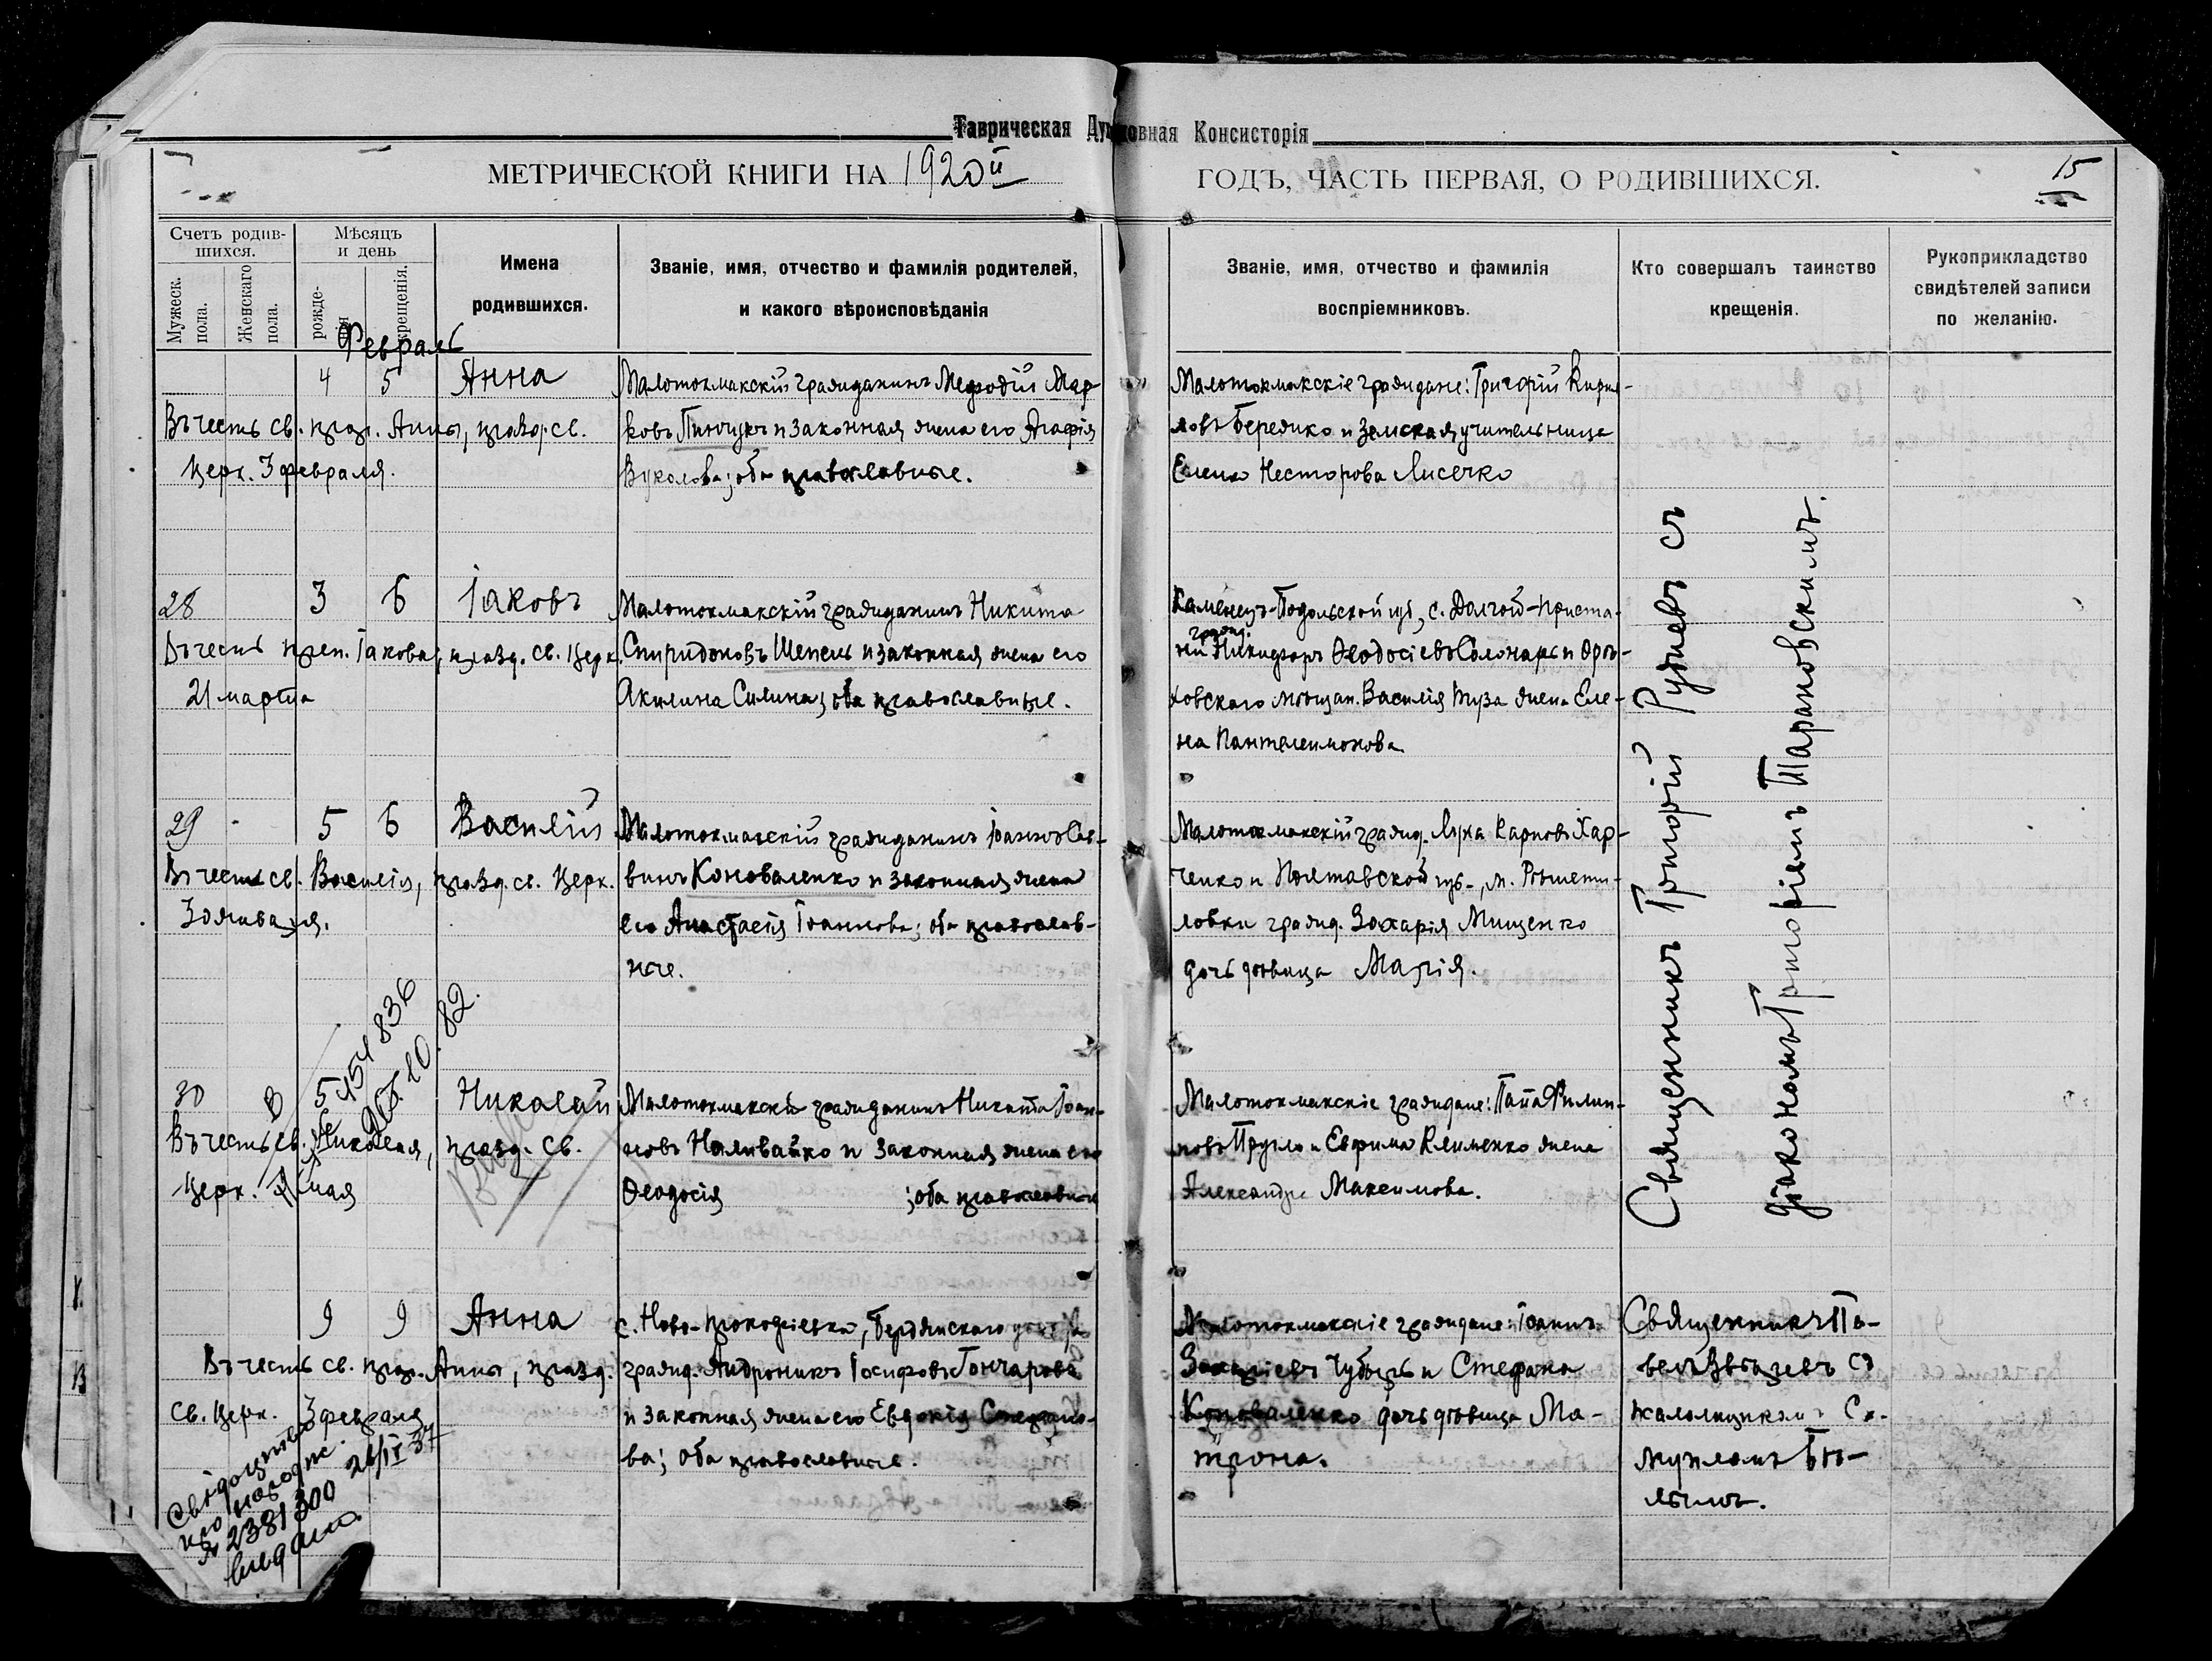 Таврическая Духовная Консисторія
МЕТРИЧЕСКОЙ КНИГИ НА 1920й
ГОДЪ, ЧАСТЬ ПЕРВАЯ, О РОДИВШИХСЯ.
15
Счетъ родив-
шихся.
Мужеск. пола.
Женскаго пола.
Мѣсяцъ
и день
рожденія
крещенія.
Имена
родившихся.
Званіе, имя, отчество и фамилія родителей,
и какого вѣроисповѣданія
Званіе, имя, отчество и фамилія
воспріемниковъ.
Кто совершалъ таинство
крещенія.
Рукоприкладство
свидѣтелей записи
по желанію.
Февраль
4 5 Анна
Въ честь св. прор. Анны, празд. св.
Церк. 3 февраля.
Малотокмакскій гражданинъ Мефодій Мар-
ковъ Пинчукъ и законная жена его Агафія
Вуколова; оба православные.
Малотокмакскіе граждане: Григорій Кирил-
ловъ Бережко и Земская учительница
Елена Несторова Лисечко
28 3 6 Іаковъ
Въ честь преп. Іакова, празд. св. Церк.
21 марта
Малотокмакскій гражданинъ Никита
Спиридоновъ Шепель и законная жена его
Акилина Силина; оба православные.
Каменецъ-Подольской губ., с. Долгой-Приста-
ни гражд. Никифоръ Ѳеодосіевъ Солонарь и Орѣ-
ховскаго мѣщан. Василія Туза жена Еле-
на Пантелеимонова
29 5 6 Василій
Въ честь св. Василія, празд. св. Церк.
30 января.
Малотокмакскій гражданинъ Іоаннъ Сав-
винъ Коноваленко и законная жена
его Анастасія Іоаннова; оба православ-
ные.
Малотокмакскій гражд. Лука Карповъ Хар-
ченко и Полтавской губ., м. Рѣшети-
ловки гражд. Захарія Мищенко
дочь дѣвица Марія.
30 5 6 Николай
Въ честь св. Николая, празд. св.
Церк. 9 мая
454836
10. 82.
Малотокмакскій гражданинъ Никита Іоан-
новъ Наливайко и законная жена его
Ѳеодосія ; оба православные
Малотокмакскіе граждане: Папа Филип-
повъ Пругло и Евфима Клименко жена
Александра Максимова.
Священникъ Григорій Рудневъ съ
діакономъ Григоріемъ Тарановскимъ.
9 9 Анна
Въ честь св. прор. Анны, празд.
св. Церк. 3 февраля
с. Ново-Прокофіевки, Бердянскаго уѣзда
гражд. Андроникъ Іосифовъ Гончаровъ
и законная жена его Евдокія Стефано-
ва; оба православные.
Малотокмакскіе граждане: Іоаннъ
Захаріевъ Чубарь и Стефана
Коноваленко дочь дѣвица Ма-
трона.
Священникъ Па-
велъ Звѣздевъ съ
псаломщикомъ Са-
муиломъ Бѣ-
лымъ.
Свідоцтво
про народж.
№ 2381300 26/IV 37
видано